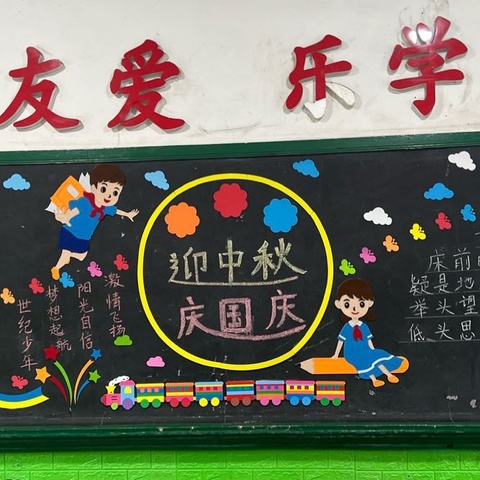 友爱 乐学
迎中秋
庆国庆
激情飞扬
阳光自信
梦想起航
世纪少年
床前
疑是地
举头望
低头思